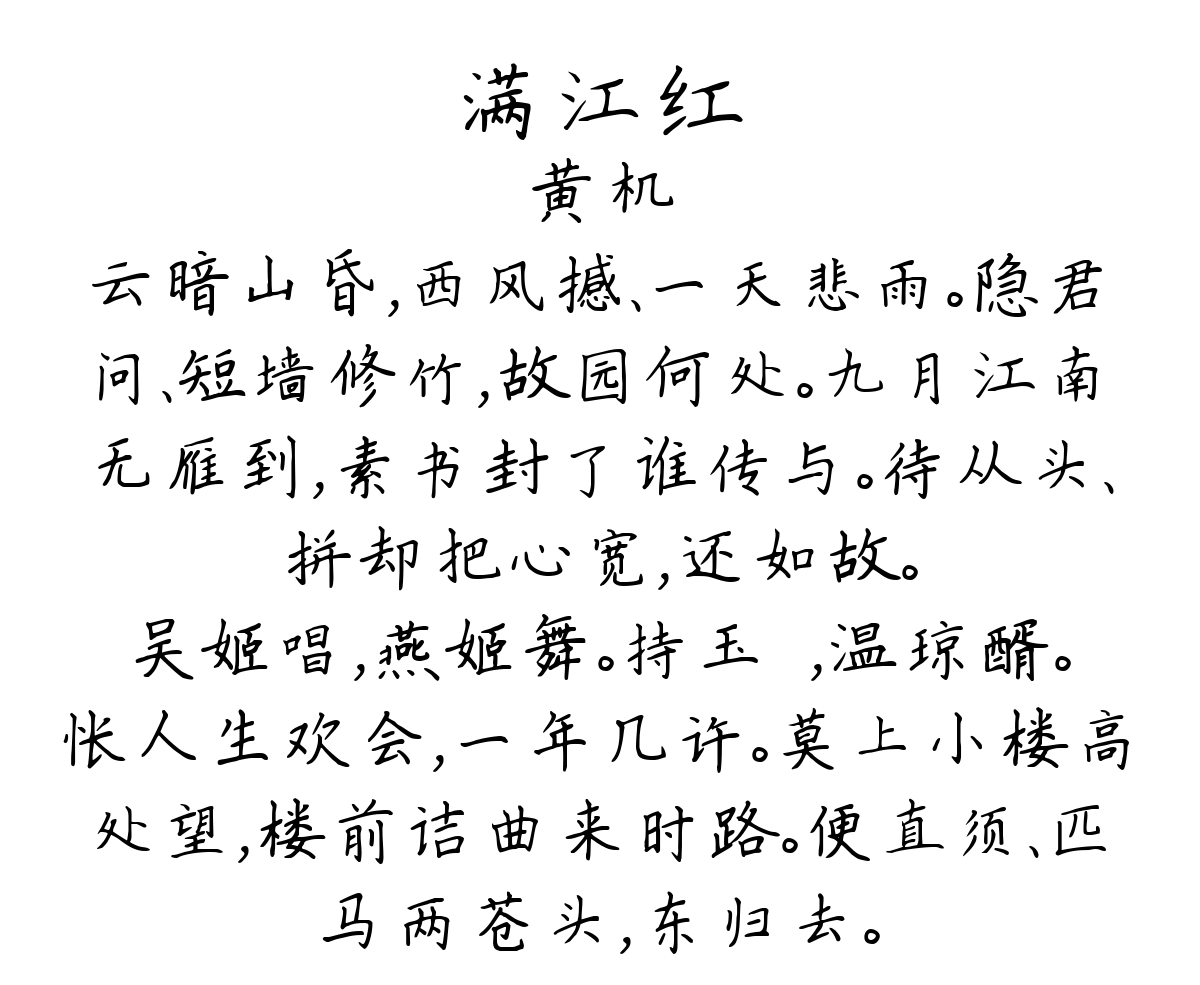 满江红
黄机
云暗山昏,西风撼、一天悲雨。隐君
问、短墙修竹,故园何处。九月江南
无雁到,素书封了谁传与。待从头、
拼却把心宽,还如故。
吴姬唱,燕姬舞。持玉 ,温琼醑。
怅人生欢会,一年几许。莫上小楼高
处望,楼前诘曲来时路。便直须、匹
马两苍头,东归去。